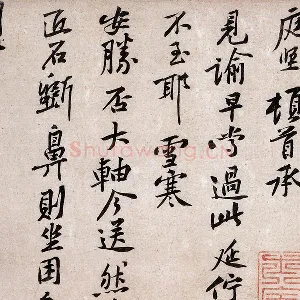 庭堅頓首承
見諭早嘗過此延佇
不至耶雪寒
安勝否大軸今送然
匠石斲鼻則坐困